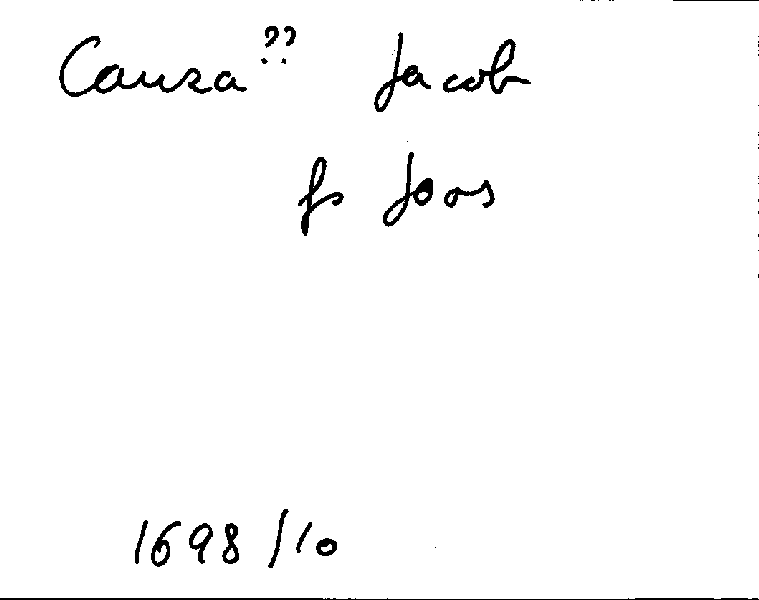 Causa?? Jacob
fs Joos
1698/10